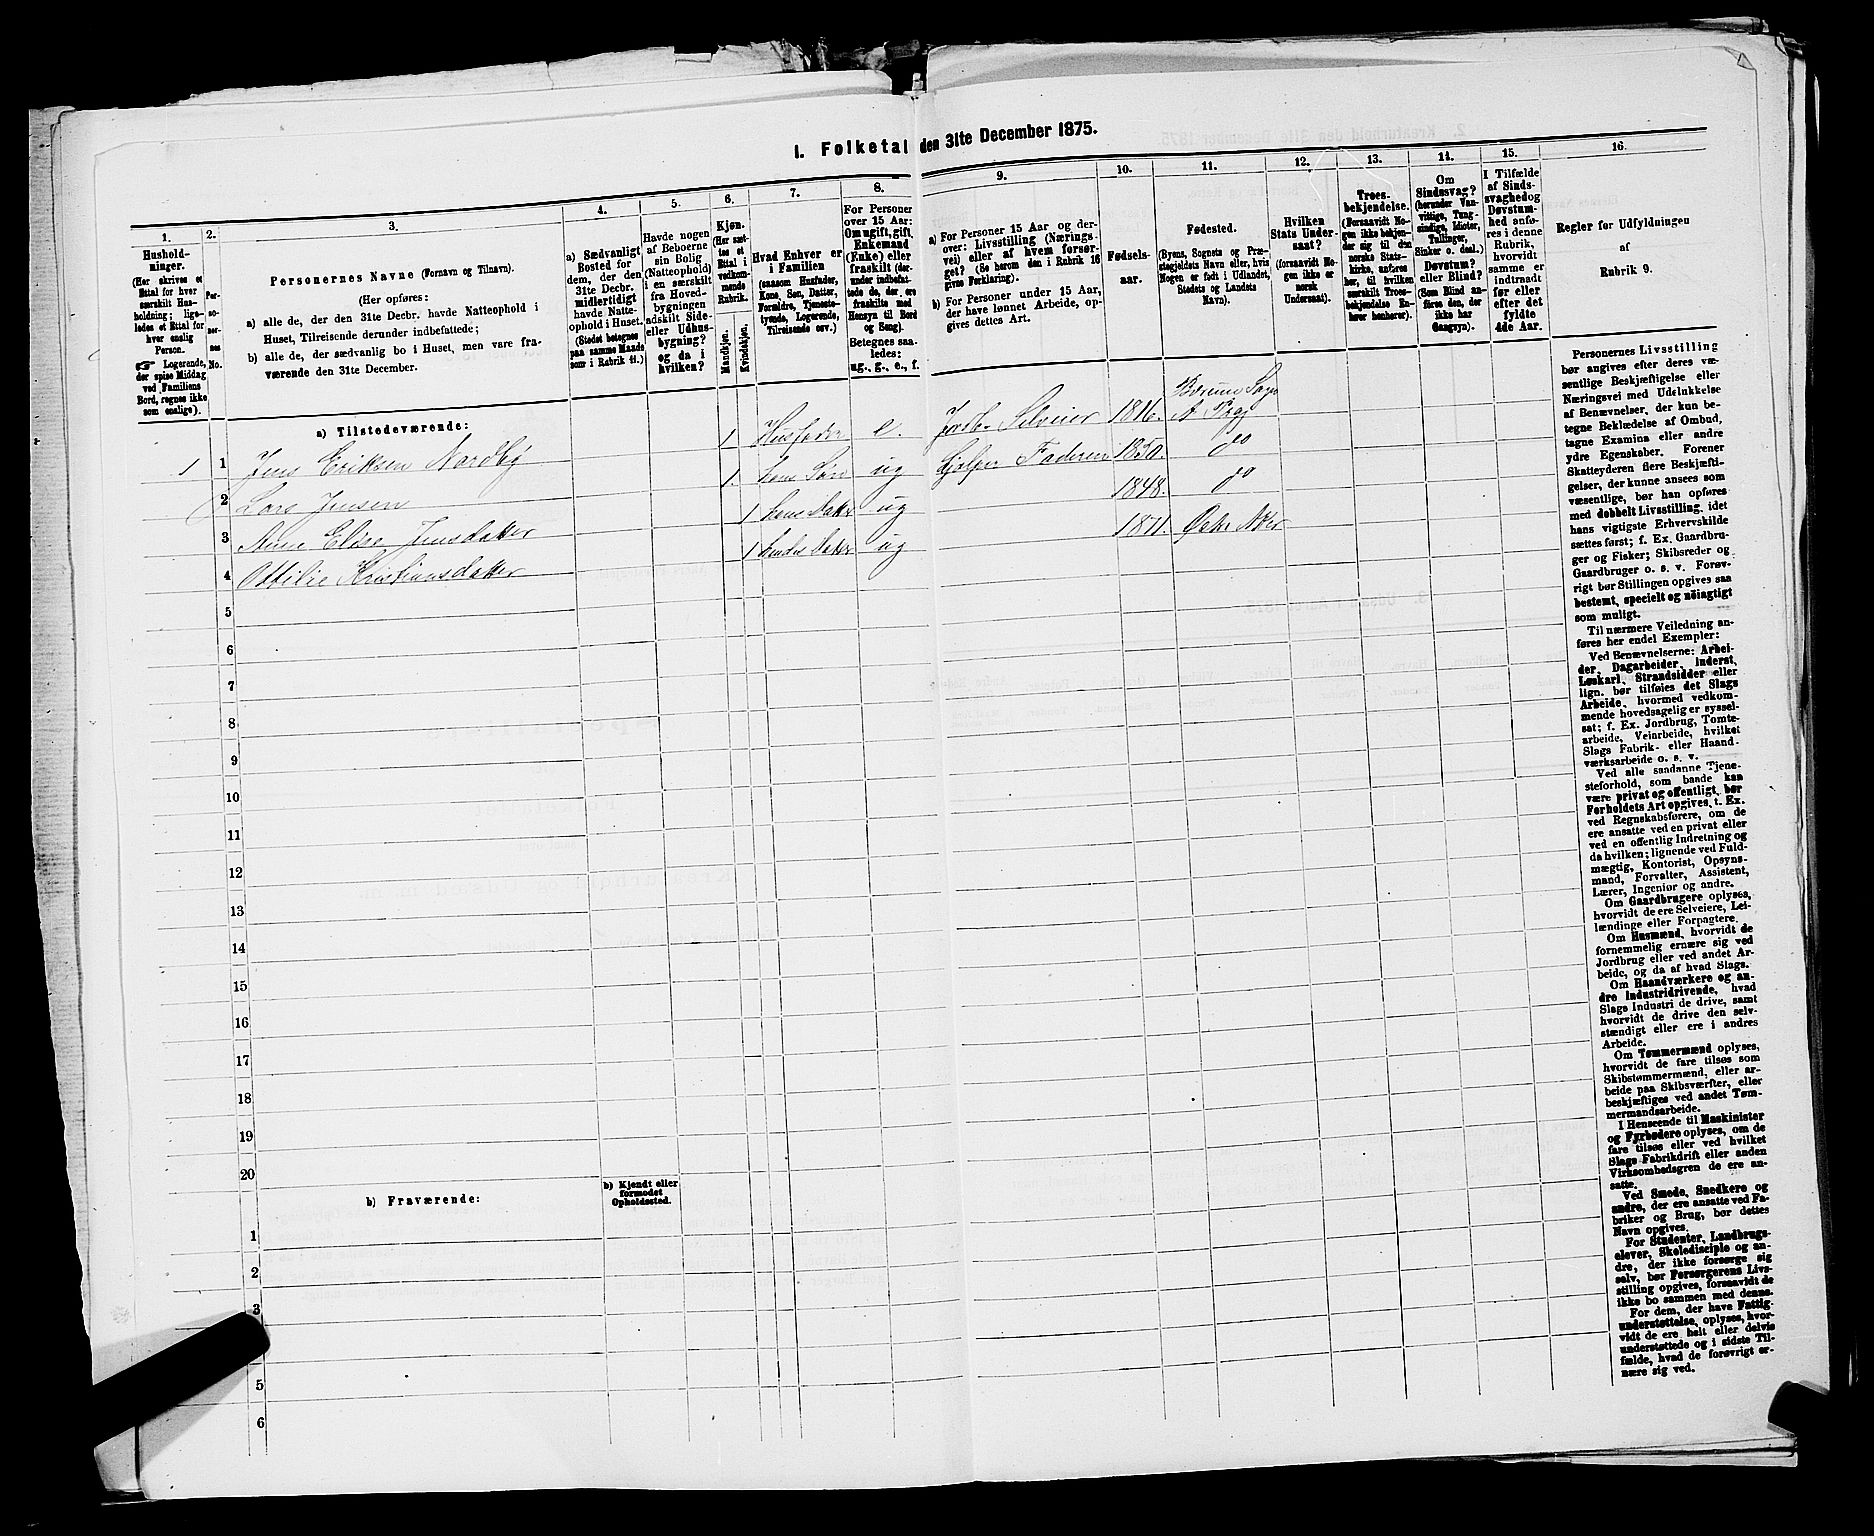 1. Folketal den 31te December 1875.
1.
Hushold-
ninger.
(Her skrives et
Ettal for hver
særskilt Hus-
holdning; lige-
ledes et Ettal for
hver enslig
Person.
☞ Logerende,
der spise Middag
ved Familiens
Bord, regnes ikke
som enslige).
2.
Per-
so-
ner-
nes
No.
3.
Personernes Navne (Fornavn og Tilnavn).
(Her opføres:
a) alle de, der den 31te Decbr. havde Natteophold i
Huset, Tilreisende derunder indbefattede;
b) alle de, der sædvanlig bo i Huset, men vare fra-
værende den 31te December.
4.
a) Sædvanligt
Bosted for
dem, der den
31te Decbr.
midlertidigt
havde Natte-
ophold i Huset.
(Stedet betegnes
paa samme Maade
som i Rubrik 11.)
5.
Havde nogen
af Beboerne
sin Bolig
(Natteophold)
i en særskilt
fra Hoved-
bygningen
adskilt Side-
eller Udhus-
bygning?
og da i
hvilken?
6.
Kjøn.
(Her sæt-
tes et
Ettal i
vedkom-
mende
Rubrik.
Mandkjøn.
Kvindekjøn.
7.
Hvad Enhver er
i Familien
(saasom Husfader,
Kone, Søn, Datter,
Forældre, Tjeneste-
tyende, Logerende,
Tilreisende osv.)
8.
For Personer
over 15 Aar:
Om ugift, gift,
Enkemand
(Enke) eller
fraskilt (der-
under indbefat-
tede de, der ere
fraskilte med
Hensyn til Bord
og Seng).
Betegnes saa-
ledes:
ug., g., e., f.
9.
a) For Personer 15 Aar og der-
over: Livsstilling (Nærings-
vei) eller af hvem forsør-
get? (Se herom den i Rubrik 16
givne Forklaring).
b) For Personer under 15 Aar,
der have lønnet Arbeide, op-
gives dettes Art.
10.
Fødsels-
aar.
11.
Fødested.
(Byens, Sognets og Præ-
stegjeldets Navn eller, hvis
Nogen er født i Udlandet,
Stedets og Landets
Navn).
12.
Hvilken
Stats Under-
saat?
(forsaavidt No-
gen ikke er
norsk
Undersaat).
13.
Troes-
bekjendelse.
(Forsaavidt No-
gen ikke bekjen-
der sig til den
norske Stats-
kirke, anføres
her, til hvilken
særskilt Troes-
bekjendelse En-
hver henhører).
14.
Om
Sindssvag?
(herunder Van-
vittige, Tung-
sindige, Idioter,
Tullinger,
Sinker o. desl.)
Døvstum?
eller Blind?
(Som Blind an-
føres den, der
ikke har
Gangsyn).
15.
I Tilfælde
af Sinds-
svaghed og
Døvstum-
hed anfø-
res i denne
Rubrik,
hvorvidt
samme er
indtraadt
før eller
efter det
fyldte
4de Aar.
16.
Regler for Udfyldningen
af
Rubrik 9.
a) Tilstedeværende:
1 1 Jens Eriksen Nordby 1 Husfader e. Jordbr. Selveier 1816. Bærum Sogn
A. Prgj
2 Lars Jensen 1. hans Søn ug hjelper Faderen 1850. do
3 Anne Elise Jensdatter 1 hans Datter ug 1848. do
4 Ottilie Kristiansdatter 1 hendes Datter ug 1871. Østre Aker
5
6
7
8
9
10
11
12
13
14
15
16
17
18
19
20
b) Fraværende:
b) Kjendt eller
formodet
Opholdssted.
1
2
3
5
6
Personernes Livsstilling
bør angives efter deres væ-
sentlige Beskjæftigelse eller
Næringsvei med Udelukkelse
af Benævnelser, der kun be-
tegne Beklædelse af Ombud,
tagne Examina eller andre
ydre Egenskaber. Forener
Skatteyderen flere Beskjæfti-
gelser, der kunne ansees som
væsentlige, bør han opføres
med dobbelt Livsstilling, idet
hans vigtigste Erhvervskilde
sættes først; f. Ex. Gaardbru-
ger og Fisker; Skibsreder og
Gaardbruger o. s. v. Forøv-
rigt bør Stillingen opgives saa
bestemt, specielt og nöiagtigt
som muligt.
Til nærmere Veiledning an-
føres her endel Exempler:
Ved Benævnelserne: Arbei-
der, Dagarbeider, Inderst,
Løskarl, Strandsidder eller
lign. bør tilføies det Slags
Arbeide, hvormed vedkom-
mende hovedsagelig er syssel-
sat; f. Ex. Jordbrug, Tomte-
arbeide, Veiarbeide, hvilket
Slags Fabrik- eller Haand-
værksarbeide o. s. v.
Ved alle saadanne Tjene-
steforhold, som baade kan
være privat og offentligt, bør
Forholdets Art opgives, t. Ex.
ved Regnskabsførere, om de
ere ansatte ved en privat eller
ved en offentlig Indretning og
da hvilken; lignende ved Fuld-
mægtig, Kontorist, Opsyns-
mand, Forvalter, Assistent,
Lærer, Ingeniør og andre.
Om Gaardbrugere oplyses,
hvorvidt de ere Selveiere, Lei-
lændinge eller Forpagtere.
Om Husmænd, hvorvidt de
fornemmelig ernære sig ved
Jordbrug eller ved andet Ar-
beide, og da af hvad Slags.
Om Haandværkere og an-
dre Industridrivende, hvad
Slags Industri de drive, samt
hvorvidt de drive den selv-
stændigt eller ere i andres
Arbeide.
Om Tømmermænd oplyses,
hvorvidt de fare tilsøs som
Skibstømmermænd, eller ar-
beide paa Skibsværfter, eller
beskjæftiges ved andet Tøm-
mermandsarbeide.
I Henseende til Maskinister
og Fyrbødere oplyses, om de
fare tilsøs eller ved hvilket
Slags Fabrikdrift eller anden
Virksomhedsgren de ere an-
satte.
Ved Smede, Snedkere og
andre, der ere ansatte ved Fa-
briker og Brug, bør dettes
Navn opgives.
For Studenter, Landbrugs-
elever, Skoledisciple og an-
dre, der ikke forsørge sig
selv, bør Forsørgerens Livs-
stilling opgives, forsaavidt de
ikke bo sammen med denne.
For dem, der have Fattig-
understøttelse, oplyses, hvor-
vidt de ere helt eller delvis
understøttede og i sidste Til-
fælde, hvad de forøvrigt er-
nære sig ved.